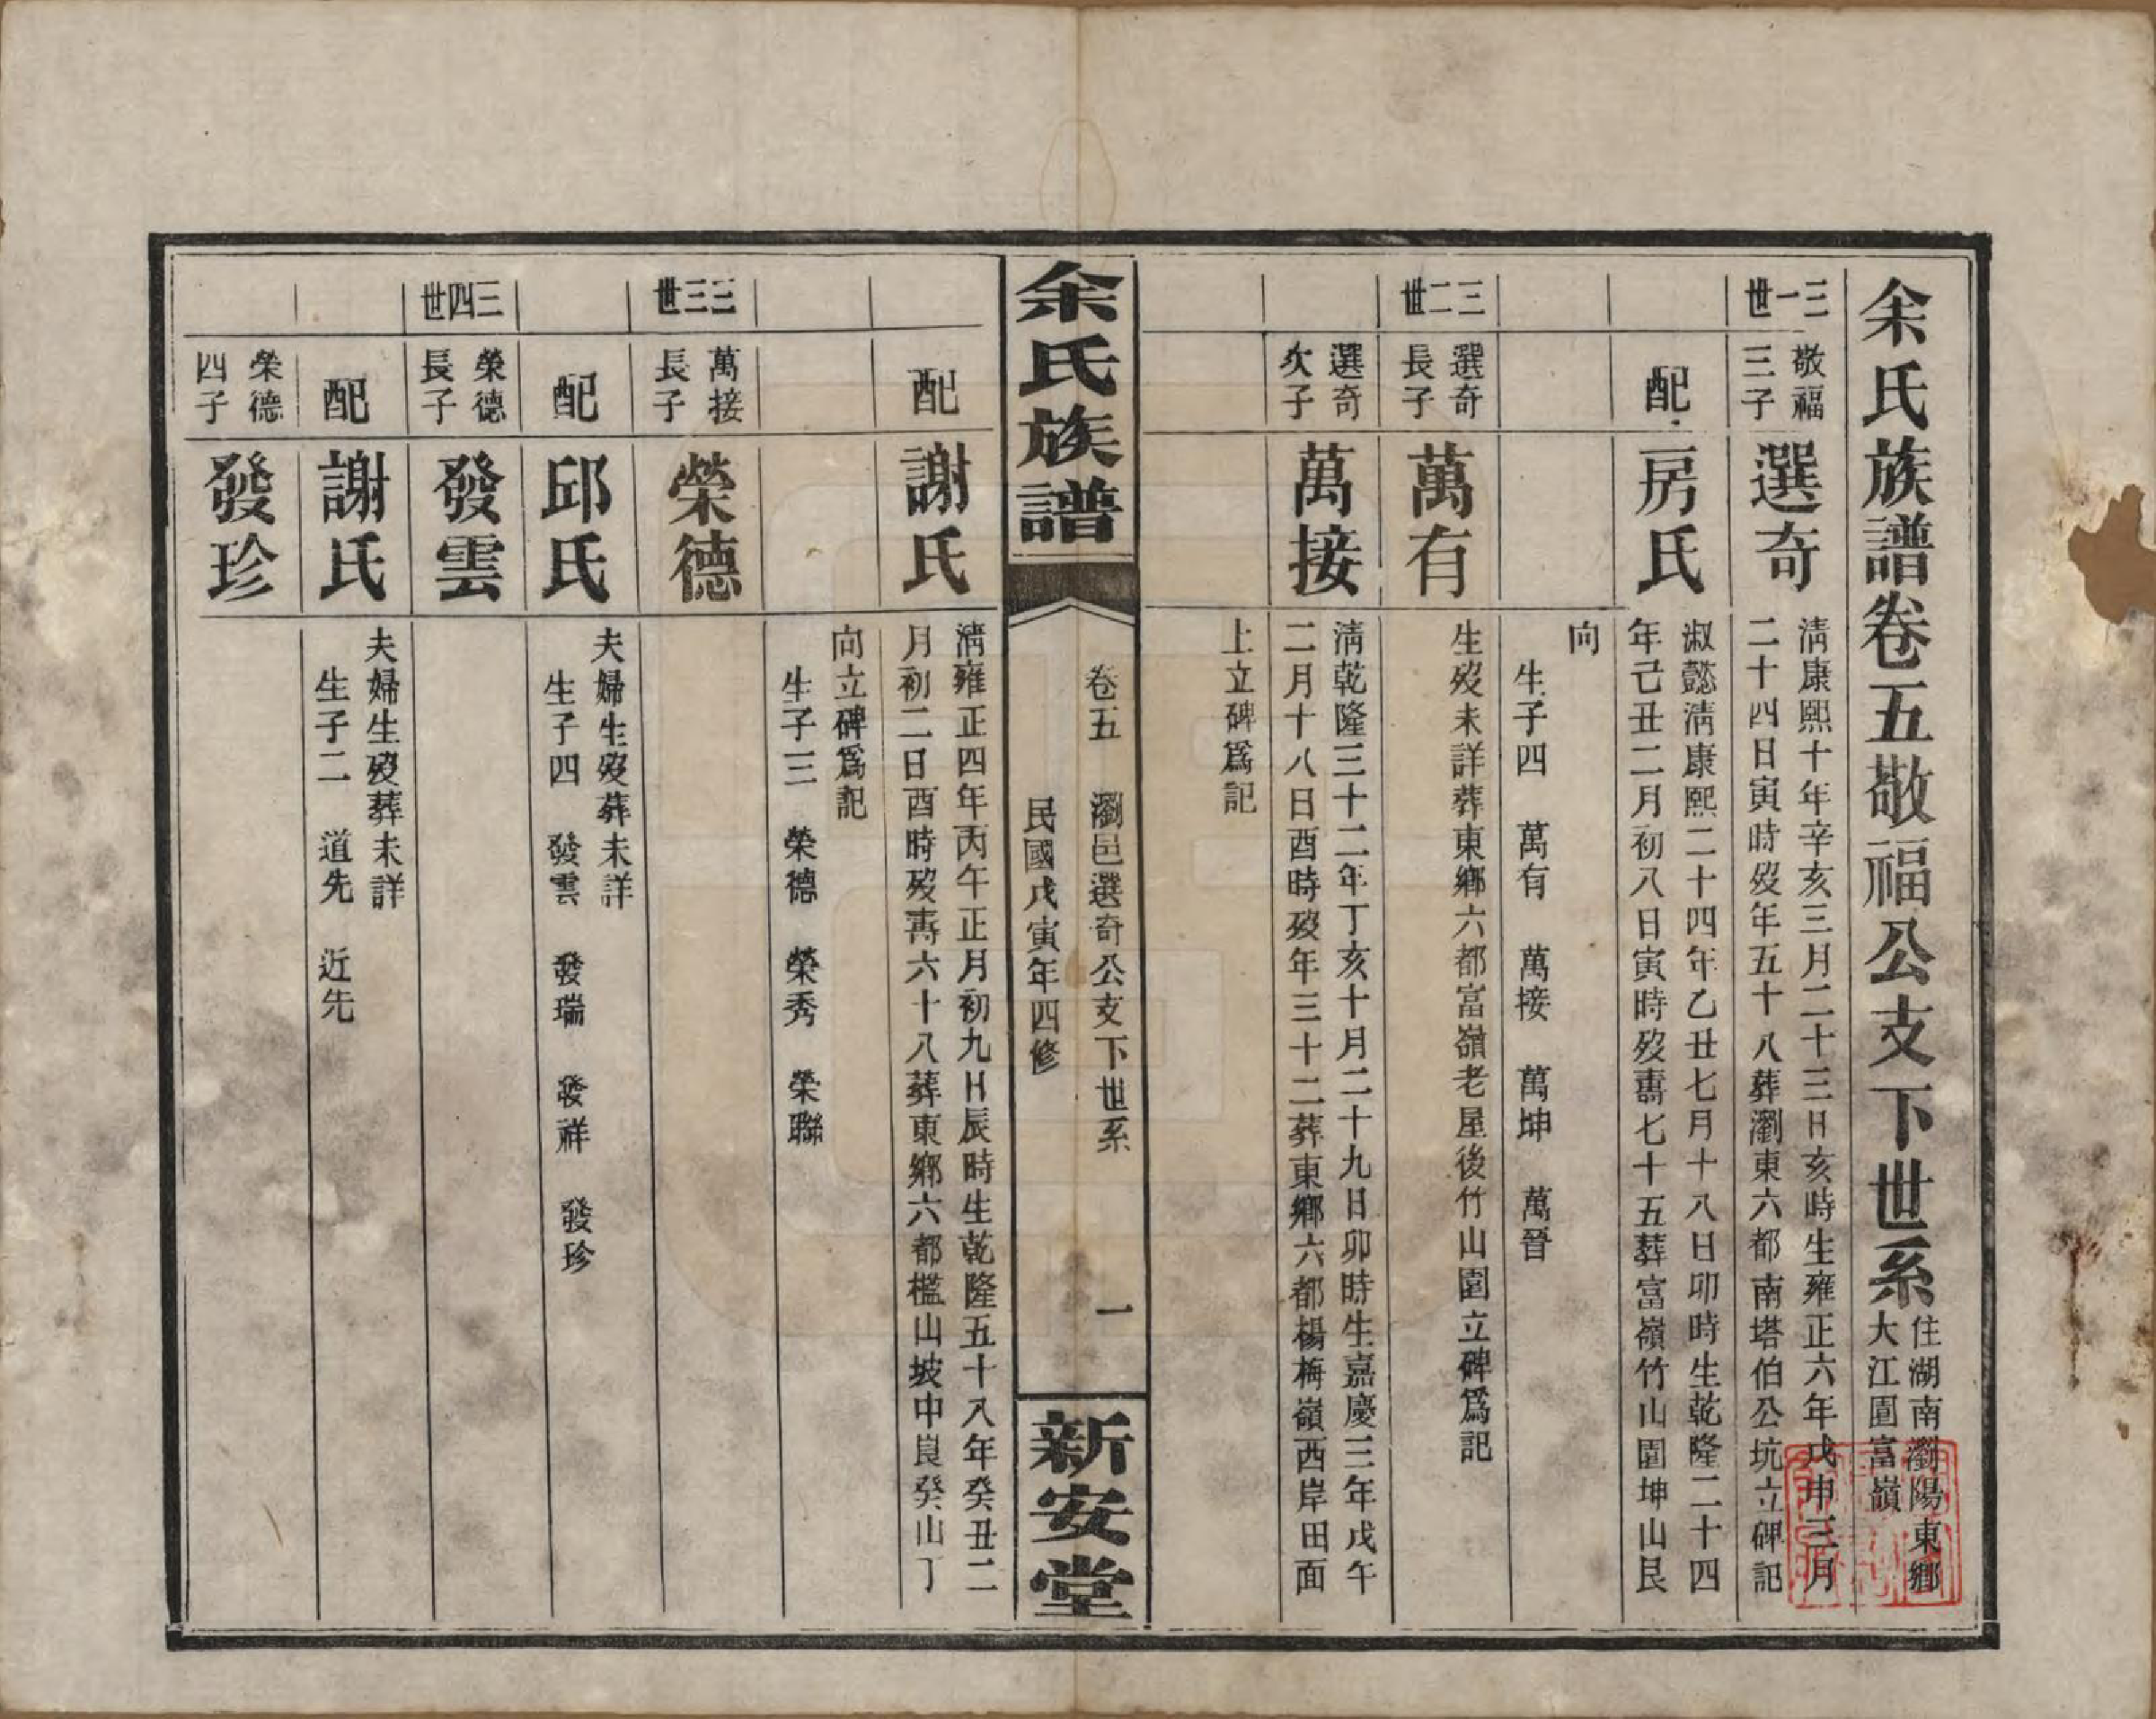 余氏族譜卷五敬福公支下世系
住湖南瀏陽東鄉
大江圍富嶺
三一世
敬福
三子
選奇
清康熙十年辛亥三月二十三日亥時生雍正六年戊申三月
二十四日寅時歿年五十八葬瀏東六都南塔伯公坑立碑記
配
房氏
淑懿清康熙二十四年乙丑七月十八日卯時生乾隆二十四
年己丑二月初八日寅時歿壽七十五葬富嶺竹山園坤山艮
向
生子四 萬有 萬接 萬坤 萬晉
三二世
選奇
長子
萬有
生歿未詳葬東鄉六都富嶺老屋後竹山園立碑爲記
選奇
次子
萬接
清乾隆三十二年丁亥十月二十九日卯時生嘉慶三年戊午
二月十八日酉時歿年三十二葬東鄉六都楊梅嶺西岸田面
上立碑爲記
余氏族譜
卷五 瀏邑選奇公支下世系 一
民國戊寅年四修
新安堂
配
謝氏
清雍正四年丙午正月初九日辰時生乾隆五十八年癸丑二
月初二日酉時歿壽六十八葬東鄉六都檻山坡中崀癸山丁
向立碑爲記
生子三 榮德 榮秀 榮聯
三三世
萬接
長子
榮德
配
邱氏
夫婦生歿葬未詳
生子四 發雲 發瑞 發祥 發珍
三四世
榮德
長子
發雲
配
謝氏
夫婦生歿葬未詳
生子二 道先 近先
榮德
四子
發珍